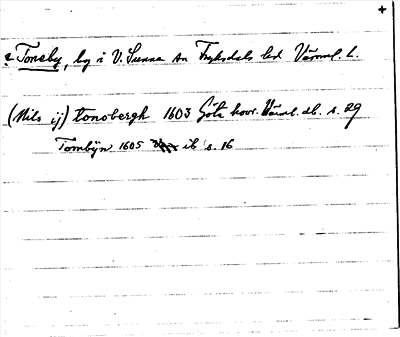 +
Toneby, by i V. Sunne sn Fryksdals hd Värml. l.
(Nils ij) tonobergh 1603 Göta hovr. Värml. db. s. 29
Tombÿn 1605 ib s. 16